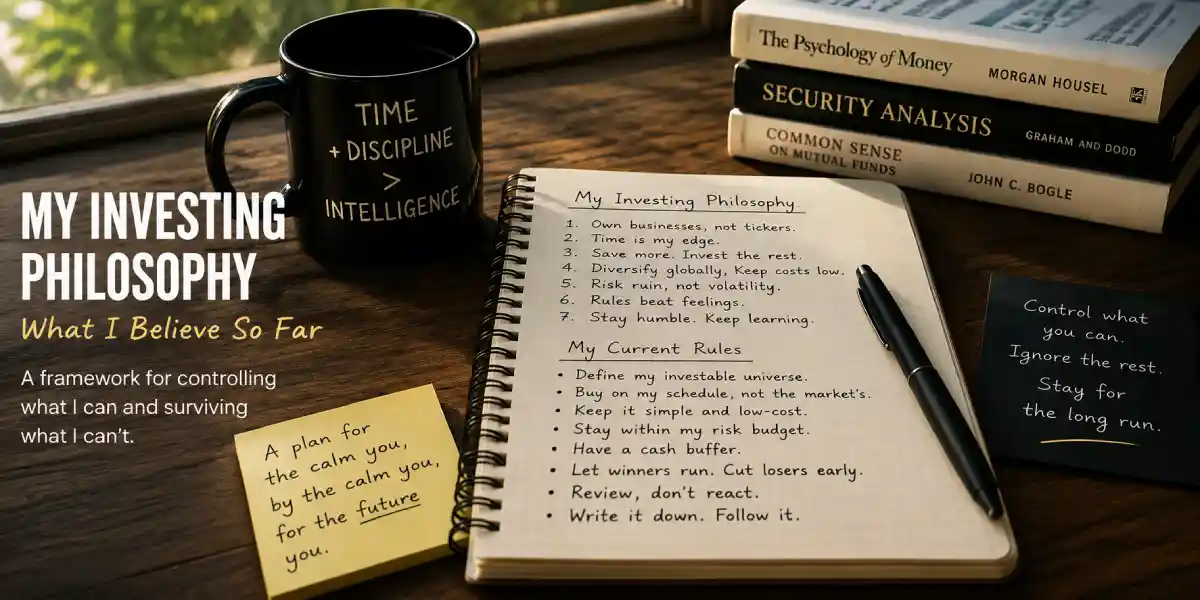 MY INVESTING
PHILOSOPHY
What I Believe So Far
A framework for controlling
what I can and surviving
what I can't.
TIME
+ DISCIPLINE
>
INTELLIGENCE
The Psychology of Money MORGAN HOUSEL
SECURITY ANALYSIS GRAHAM AND DODD
COMMON SENSE
ON MUTUAL FUNDS
JOHN C. BOGLE
My Investing Philosophy
1. Own businesses, not tickers.
2. Time is my edge.
3. Save more. Invest the rest.
4. Diversify globally, Keep costs low.
5. Risk ruin, not volatility.
6. Rules beat feelings.
7. Stay humble. Keep learning.
My Current Rules
• Define my investable universe.
• Buy on my schedule, not the market's.
• Keep it simple and low-cost.
• Stay within my risk budget.
• Have a cash buffer.
• Let winners run. Cut losers early.
• Review, don't react.
• Write it down. Follow it.
A plan for
the calm you,
by the calm you,
for the future
you.
Control what
you can.
Ignore the rest.
Stay for
the long run.